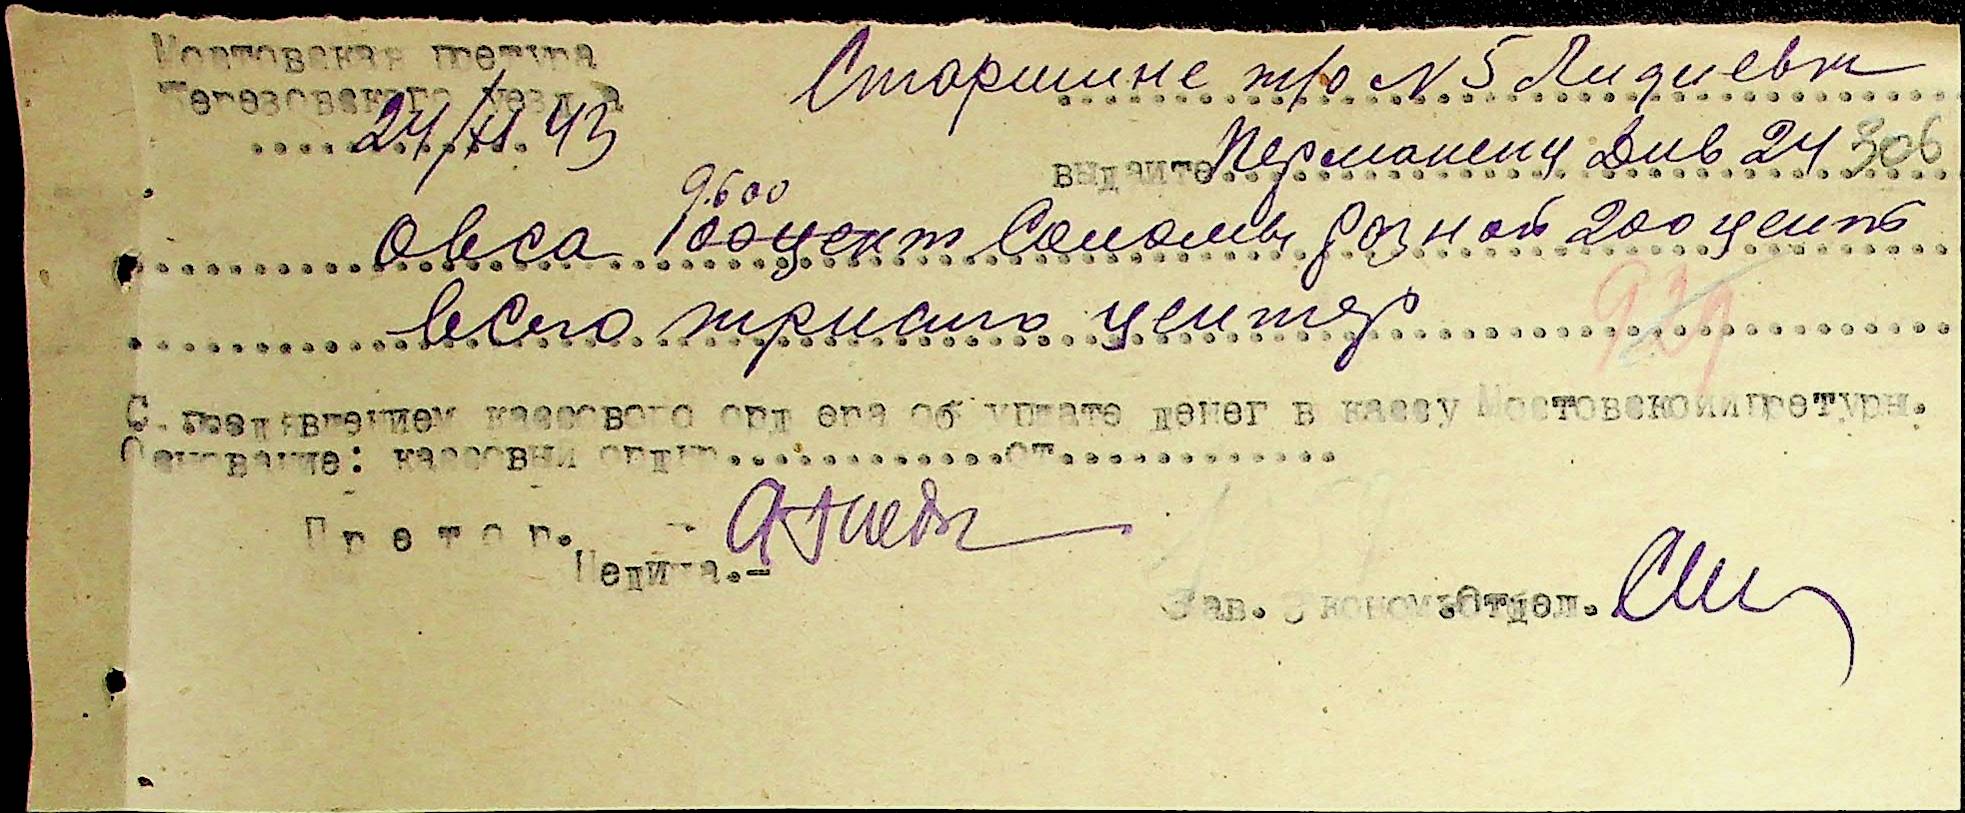 Мостовская претура
Березовского уезда
Старшине т/о N 5 Лидиевк
24/XI 43
выдайте Перманени Див 24 306
9.600
овса 100 цент Соломы розной 200 цент
всего триста центер
С. предявлением кассового ордера об уплате денег в кассу Мостовской претуры.
Основание: кассовый ордер.............от.............
Претор.
Педича.-
Зав. Эконом.Отдел.